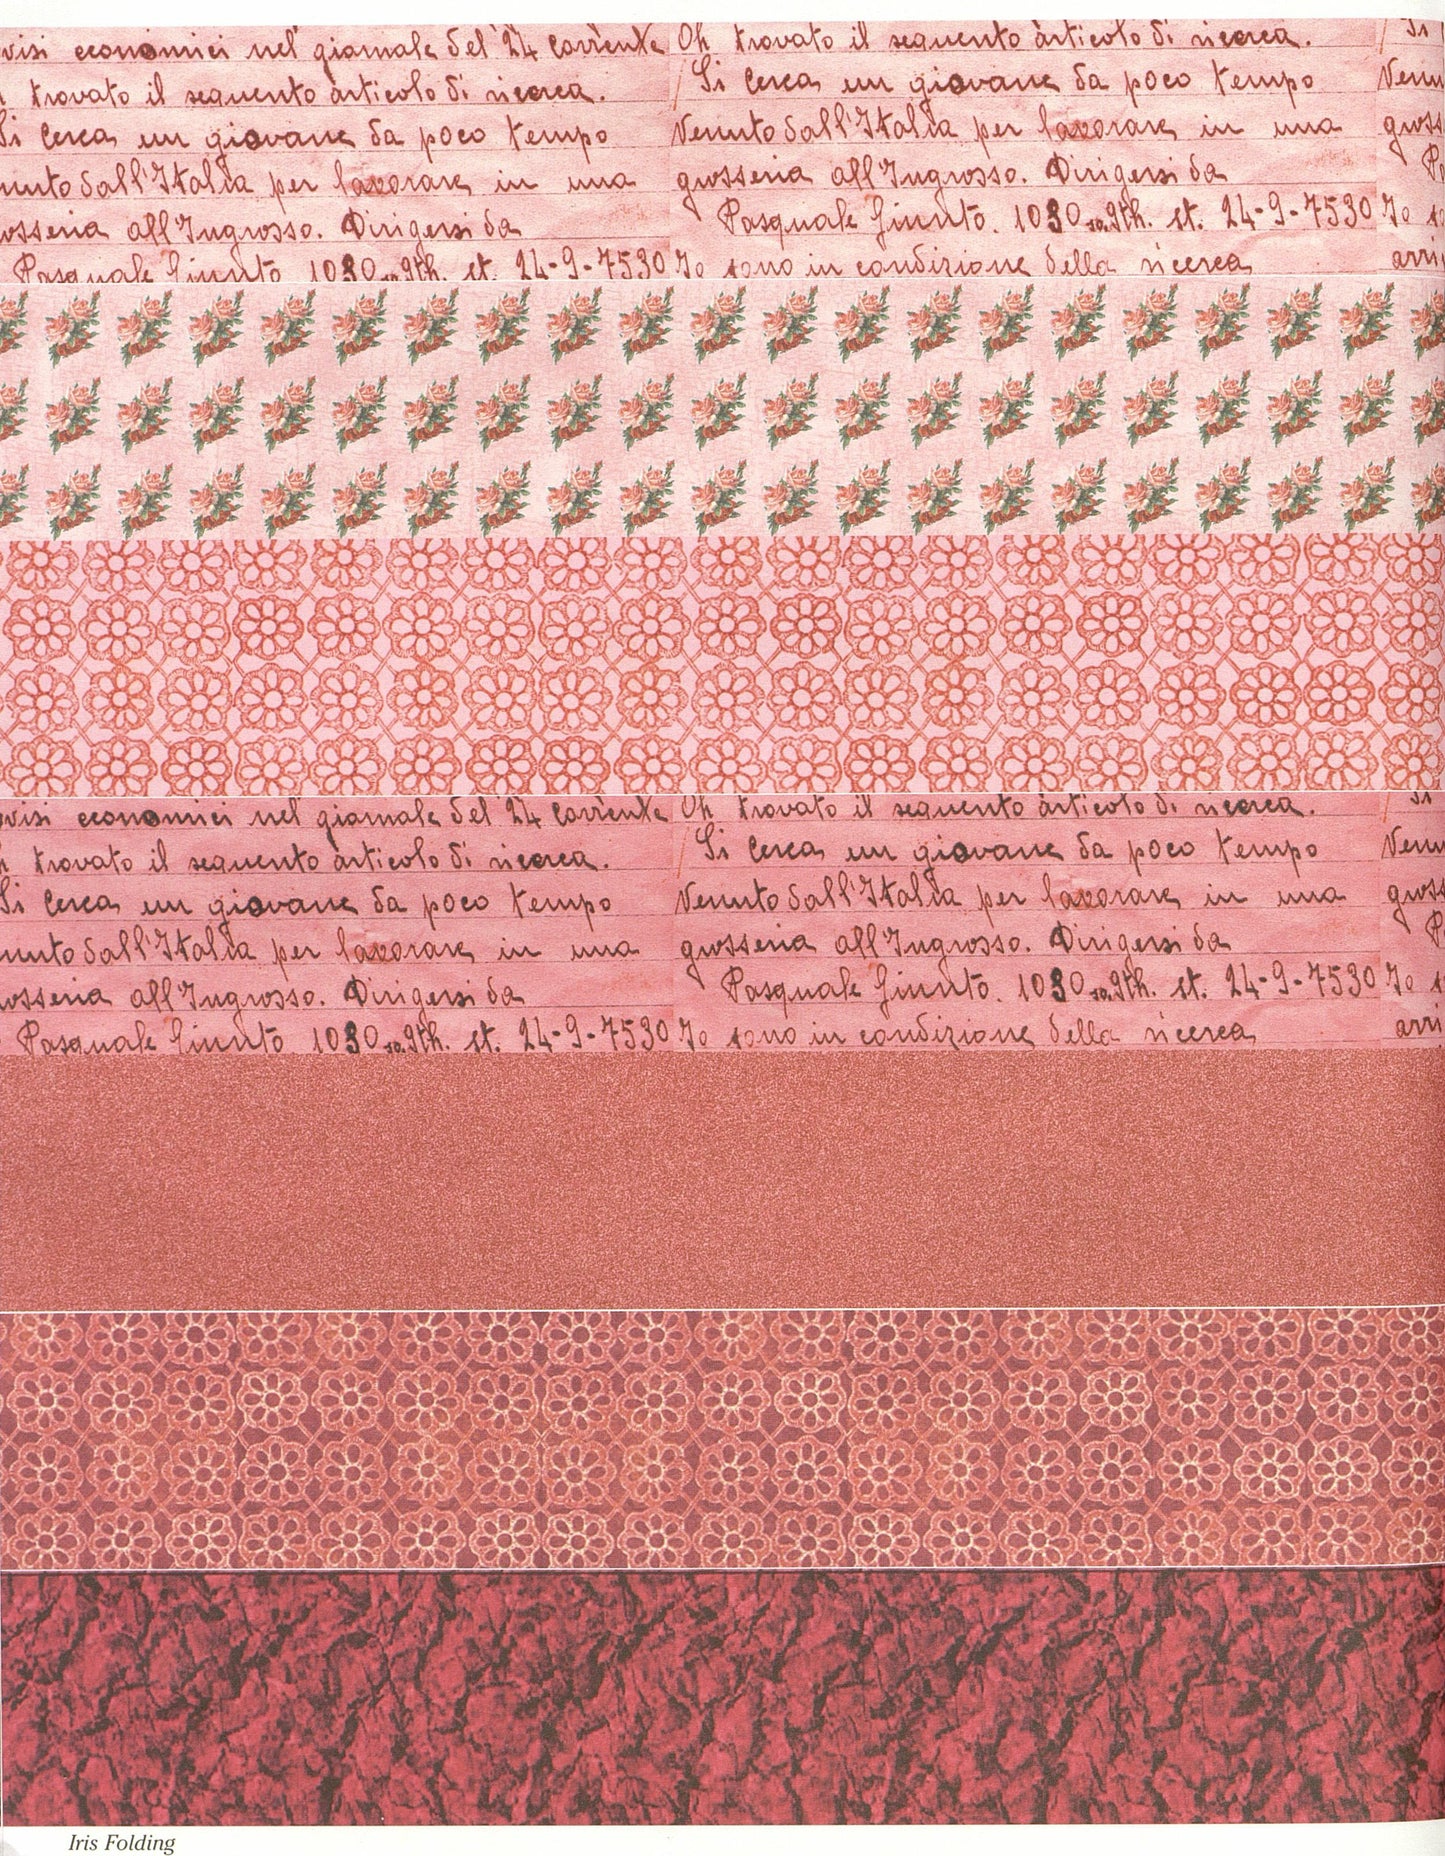 visi economici nel giornale del 24 corrente Oh trovato il seguento articolo di ricerca. Si
trovato il seguento articolo di ricerca. Si cerca un giovane da poco tempo
Si cerca un giovane da poco tempo Venuto dall'Italia per lavorare in una
nuto dall'Italia per lavorare in una grosseria all'Ingrosso. Dirigersi da
osseria all'Ingrosso. Dirigersi da Pasquale Giunto. 1030 9th. st. 24-9-7530 Io
Pasquale Giunto 1030 9th. st. 24-9-7530 Io sono in condizione della ricerca arri
visi economici nel giornale del 24 corrente Oh trovato il seguento articolo di ricerca. Si
trovato il seguento articolo di ricerca. Si cerca un giovane da poco tempo
Si cerca un giovane da poco tempo Venuto dall'Italia per lavorare in una
nuto dall'Italia per lavorare in una grosseria all'Ingrosso. Dirigersi da
osseria all'Ingrosso. Dirigersi da Pasquale Giunto. 1030 9th. st. 24-9-7530 Io
Pasquale Giunto 1030 9th. st. 24-9-7530 Io sono in condizione della ricerca arri
Iris Folding